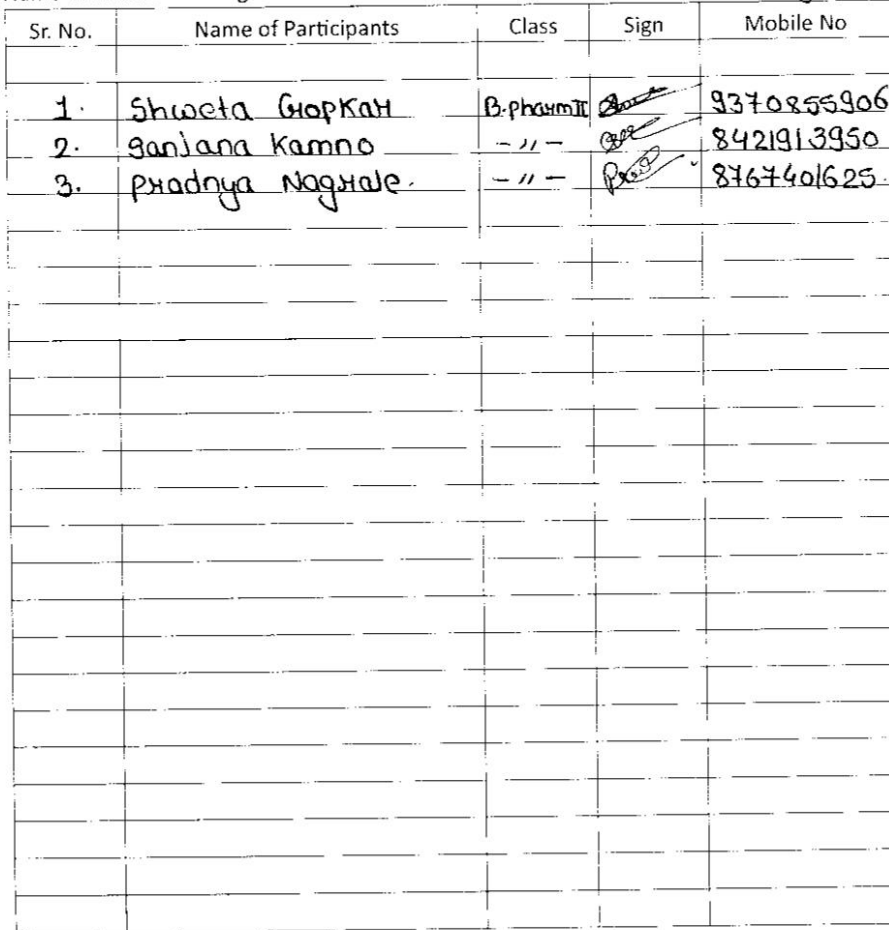 Sr. No. Name of Participants Class Sign Mobile No
1. Shweta Gopkar B.pharm II 9370855906
2. Sanjana Kamno -〃- 8421913950
3. Pradnya Nagrale. -〃- 8767401625.